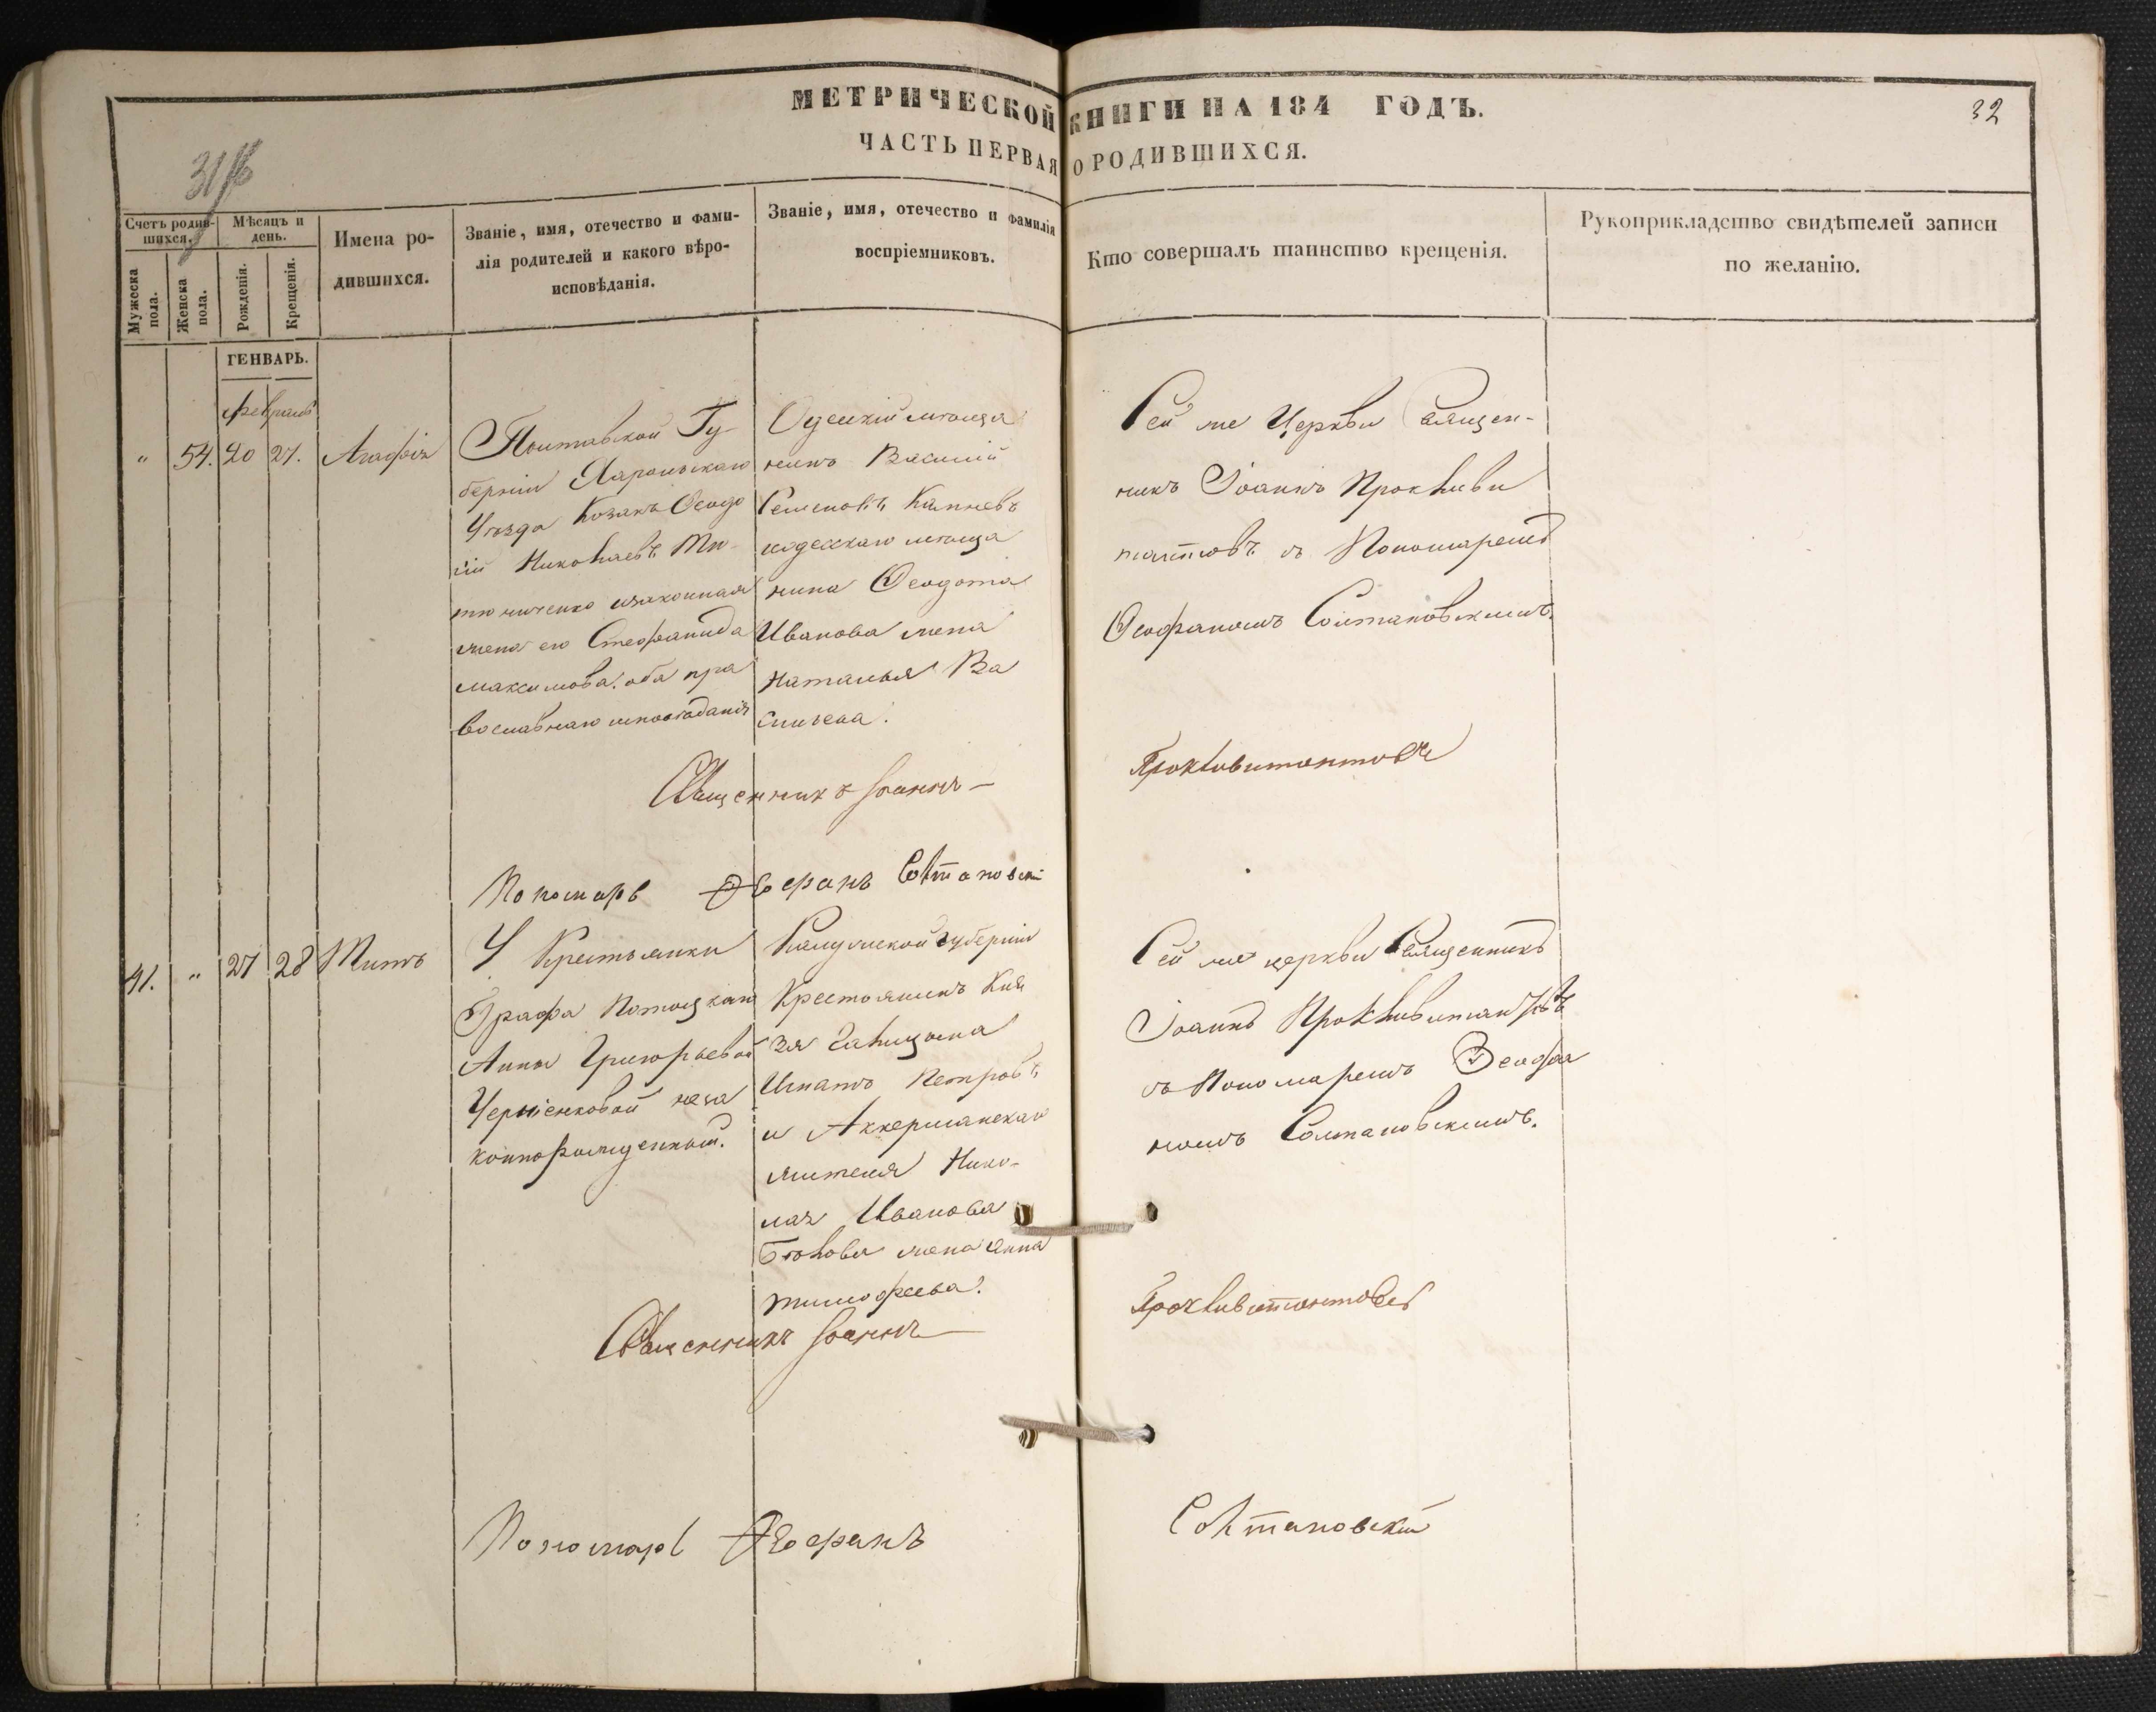 МЕТРИЧЕСКОЙ КНИГИ НА 184 ГОДЪ.
32
ЧАСТЬ ПЕРВАЯ О РОДИВШИХСЯ.
Счетъ родив-
шихся.
Мужеска пола.
Женска пола.
Мѣсяцъ и
день.
Рожденія.
Крещенія.
Имена ро-
дившихся.
Званіе, имя, отечество и фами-
лія родителей и какого вѣро-
исповѣданія.
Званіе, имя, отечество и фамилія
воспріемниковъ.
Кто совершалъ таинство крещенія.
Рукоприкладство свидѣтелей записи
по желанію.
ГЕНВАРЬ.
февраль
"
54.
20
27.
Агафія
Полтавской Гу-
берніи
Уѣзда Козакъ Ѳеодо
сій Николаевъ Ми-
законная
жена его Стефанида
Максимова. оба пра
вославнаго исповѣданія
Одесскій мѣща
нинъ Василій
Семеновъ
и одесскаго мѣща
нина Ѳеодота
Иванова жена
Наталья Ва
сильева.
Сей же Церкви Священ-
никъ Іоаннъ Прокливи
тантовъ съ Пономаремъ
Ѳеофаномъ Солтановскимъ.
Священникъ Іоаннъ Проkливитантовъ
Пономарь Ѳеофанъ Солтановскі
41.
"
27
28
Титъ
У Крестьянки
Графа Потоцкаго
Анны Григорьевой
Черненковой неза
коннорожденный.
Калужской Губерніи
Крестьянинъ Кня
зя Галицына
Игнатъ Петровъ
и Аккерманскаго
жителя Нико-
лая Иванова
жена Анна
Тимофеева.
Сей же церкви Священникъ
Іоаннъ Прокливитантовъ
съ Пономаремъ Ѳеофа
номъ Солтановскимъ.
Священникъ Іоаннъ Прокливитантовъ
Пономарь Ѳеофанъ Солтановскій